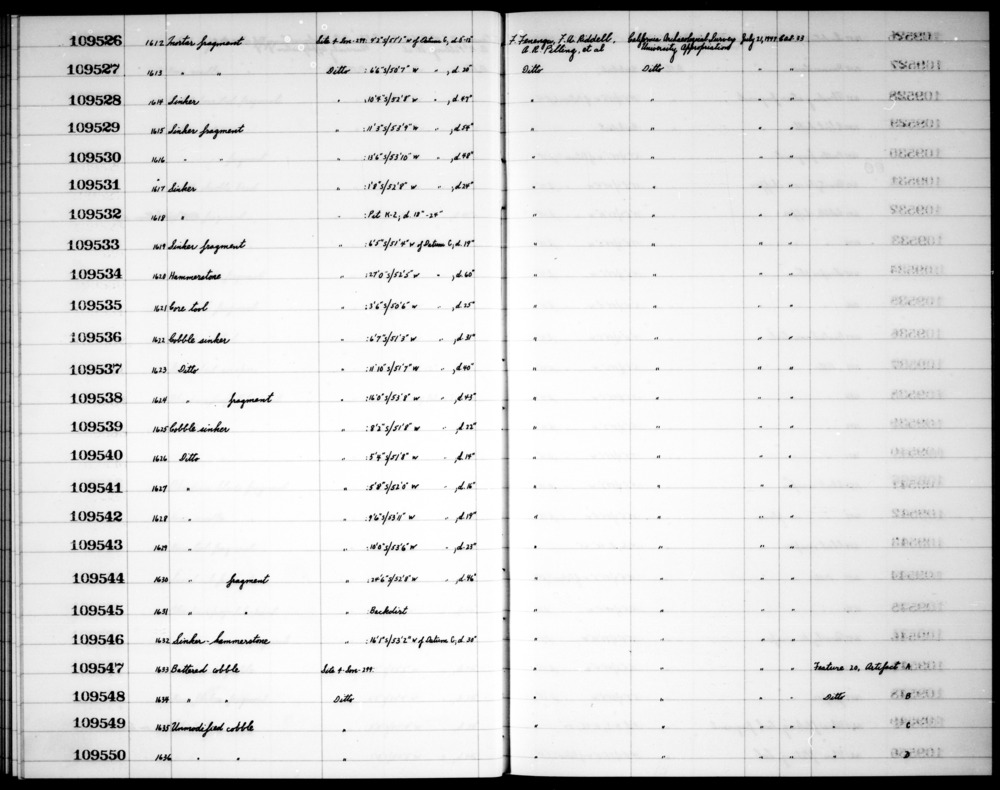 109526 1612 Mortar fragment Site 4-Son-299: 4'5"S/51'1" W of Datum C, d. 6-12" F. Fenenga, F.A. Riddell, California Archaeological Survey July 21, 1949 Cat. 23
A.R. Pilling, et al University Appropriation
109527 1613 " " Ditto :6'6"S/50'7" W " , d. 30" Ditto Ditto " "
109528 1614 Sinker " :10'4"S/52'8" W " , d. 47" " " " "
109529 1615 Sinker fragment " :11'3"S/53'9" W " , d. 54" " " " "
109530 1616 " " " :15'6"S/53'10" W " , d. 48" " " " "
109531 1617 Sinker " :1'8"S/52'8" W " , d. 24" " " " "
109532 1618 " " :Pit K-2, d. 18"-24" " " " "
109533 1619 Sinker fragment " :6'5"S/51'4" W of Datum C, d. 19" " " " "
109534 1620 Hammerstone " :27'0"S/52'5" W " , d. 60" " " " "
109535 1621 Core tool " :3'6"S/50'6" W " , d. 25" " " " "
109536 1622 Cobble sinker " :6'7"S/51'3" W " , d. 31" " " " "
109537 1623 Ditto " :11'10"S/51'7" W " , d. 40" " " " "
109538 1624 " fragment " :16'0"S/53'8" W " , d. 43" " " " "
109539 1625 Cobble sinker " :8'2"S/51'8" W " , d. 22" " " " "
109540 1626 Ditto " :5'4"S/51'8" W " , d. 14" " " " "
109541 1627 " " :5'8"S/52'0" W " , d. 16" " " " "
109542 1628 " " :9'6"S/53'11" W " , d. 19" " " " "
109543 1629 " " :10'0"S/53'6" W " , d. 23" " " " "
109544 1630 " fragment " :24'6"S/52'8" W " , d. 46" " " " "
109545 1631 " " " :Backdirt " " " "
109546 1632 Sinker-hammerstone " :16'5"S/53'2" W of Datum C, d. 30" " " " "
109547 1633 Battered cobble Site 4-Son-299. " " " " Feature 20, Artifact A
109548 1634 " " Ditto " " " " Ditto B
109549 1635 Unmodified cobble " " " " " " " C
109550 1636 " " " " " " " " " D